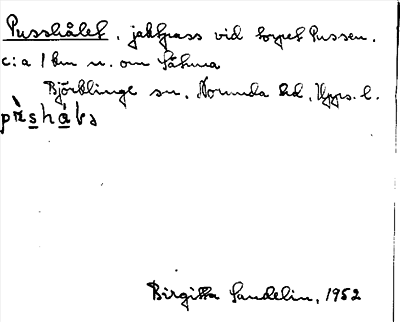 Pusshålet, jaktpass vid torpet Pussen,
c:a 1 km n. om Såhma
Björklinge sn, Norunda hd, Upps. l.
Birgitta Sandelin, 1952